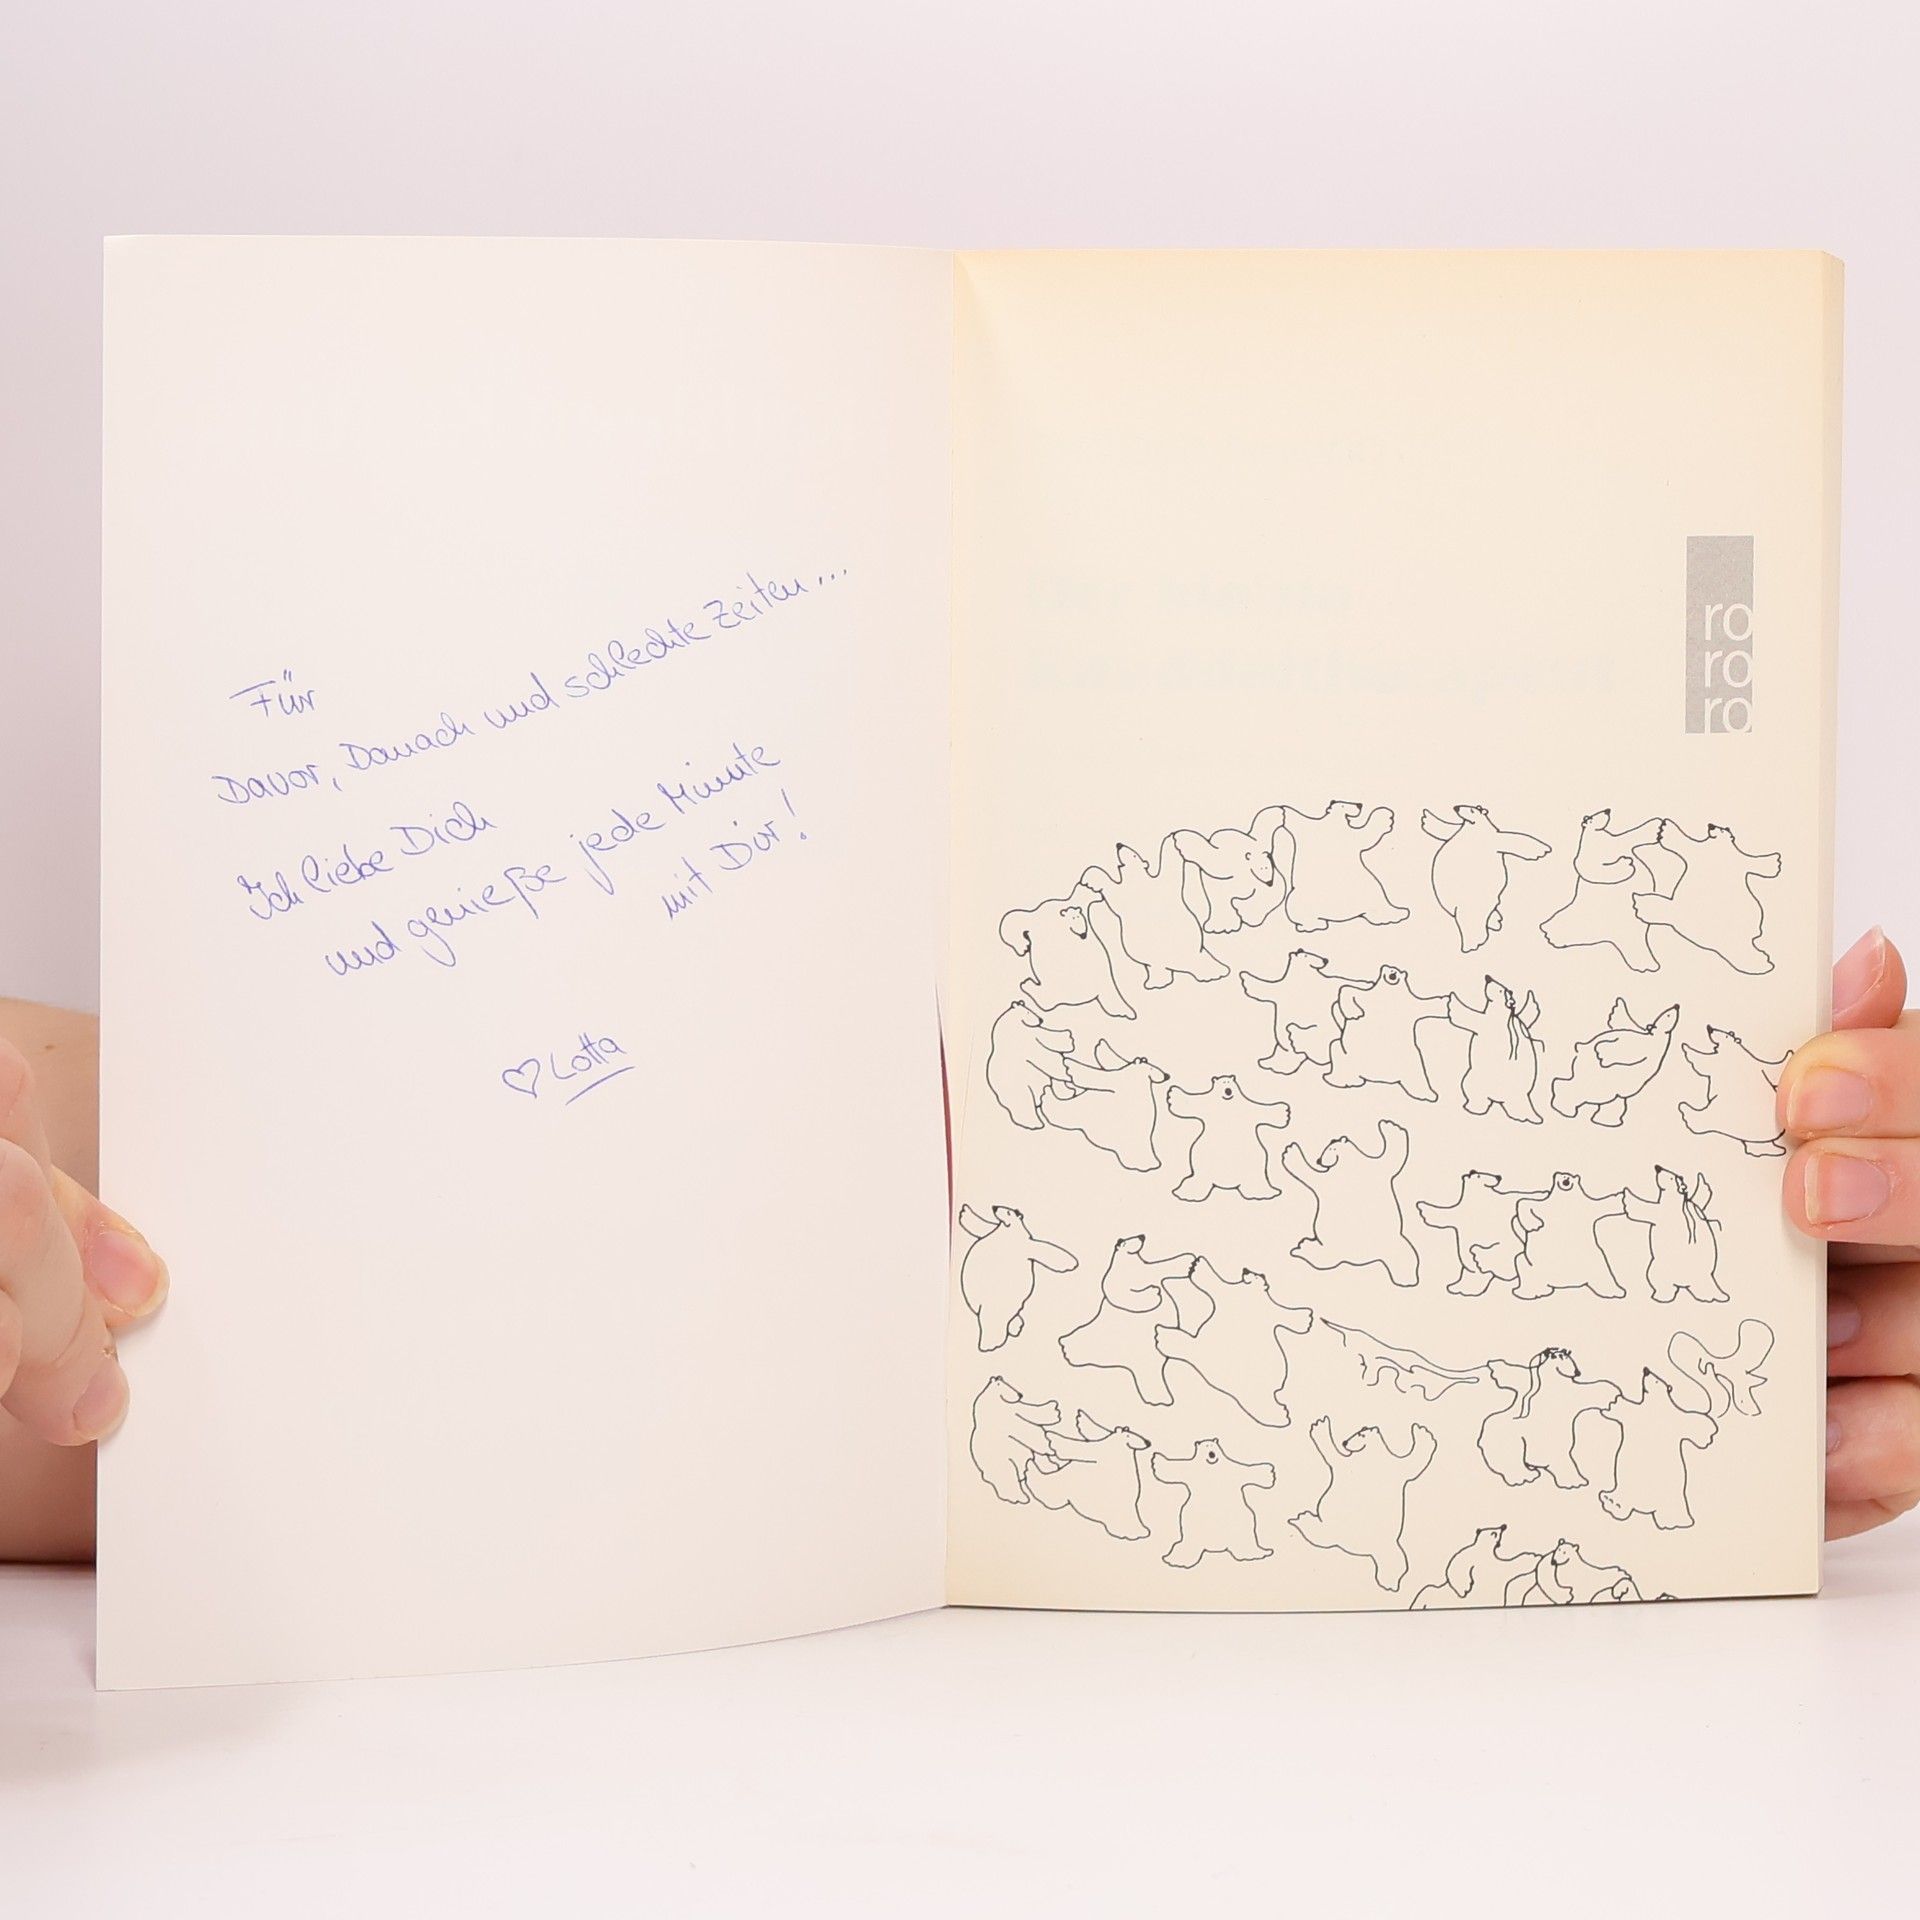 Für
Davor, Danach und schlechte Zeiten...
Ich liebe Dich
und genieße jede Minute
mit Dir!
♡ Lotta
ro
ro
ro